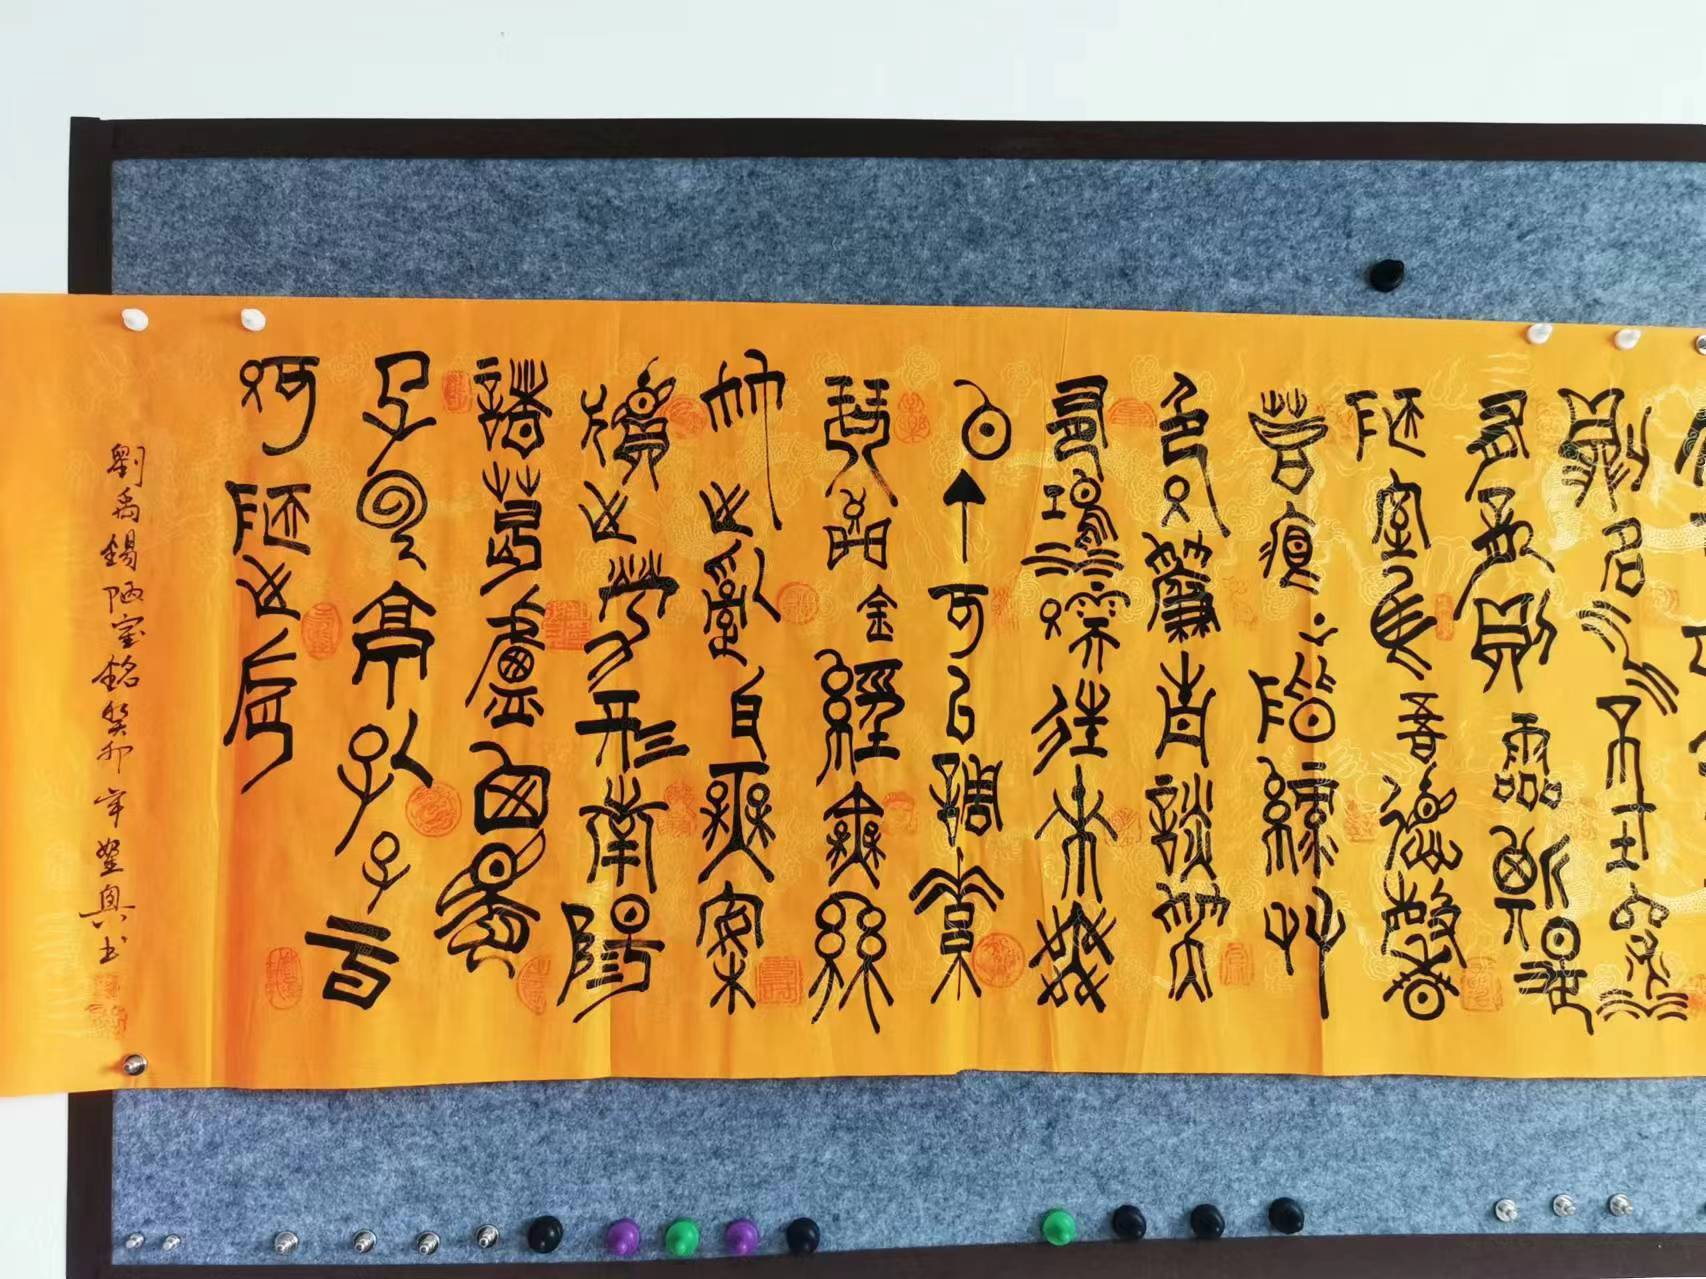 則名水不在深
有龍則靈斯是
陋室惟吾德馨
苔痕上階綠艸
色入簾青談笑
有鴻儒往來無
白丁可以調素
琴閱金經無絲
竹之亂耳無案
牘之勞形南陽
諸葛廬西蜀
子雲亭孔子
何陋之有
劉禹錫陋室銘癸卯年